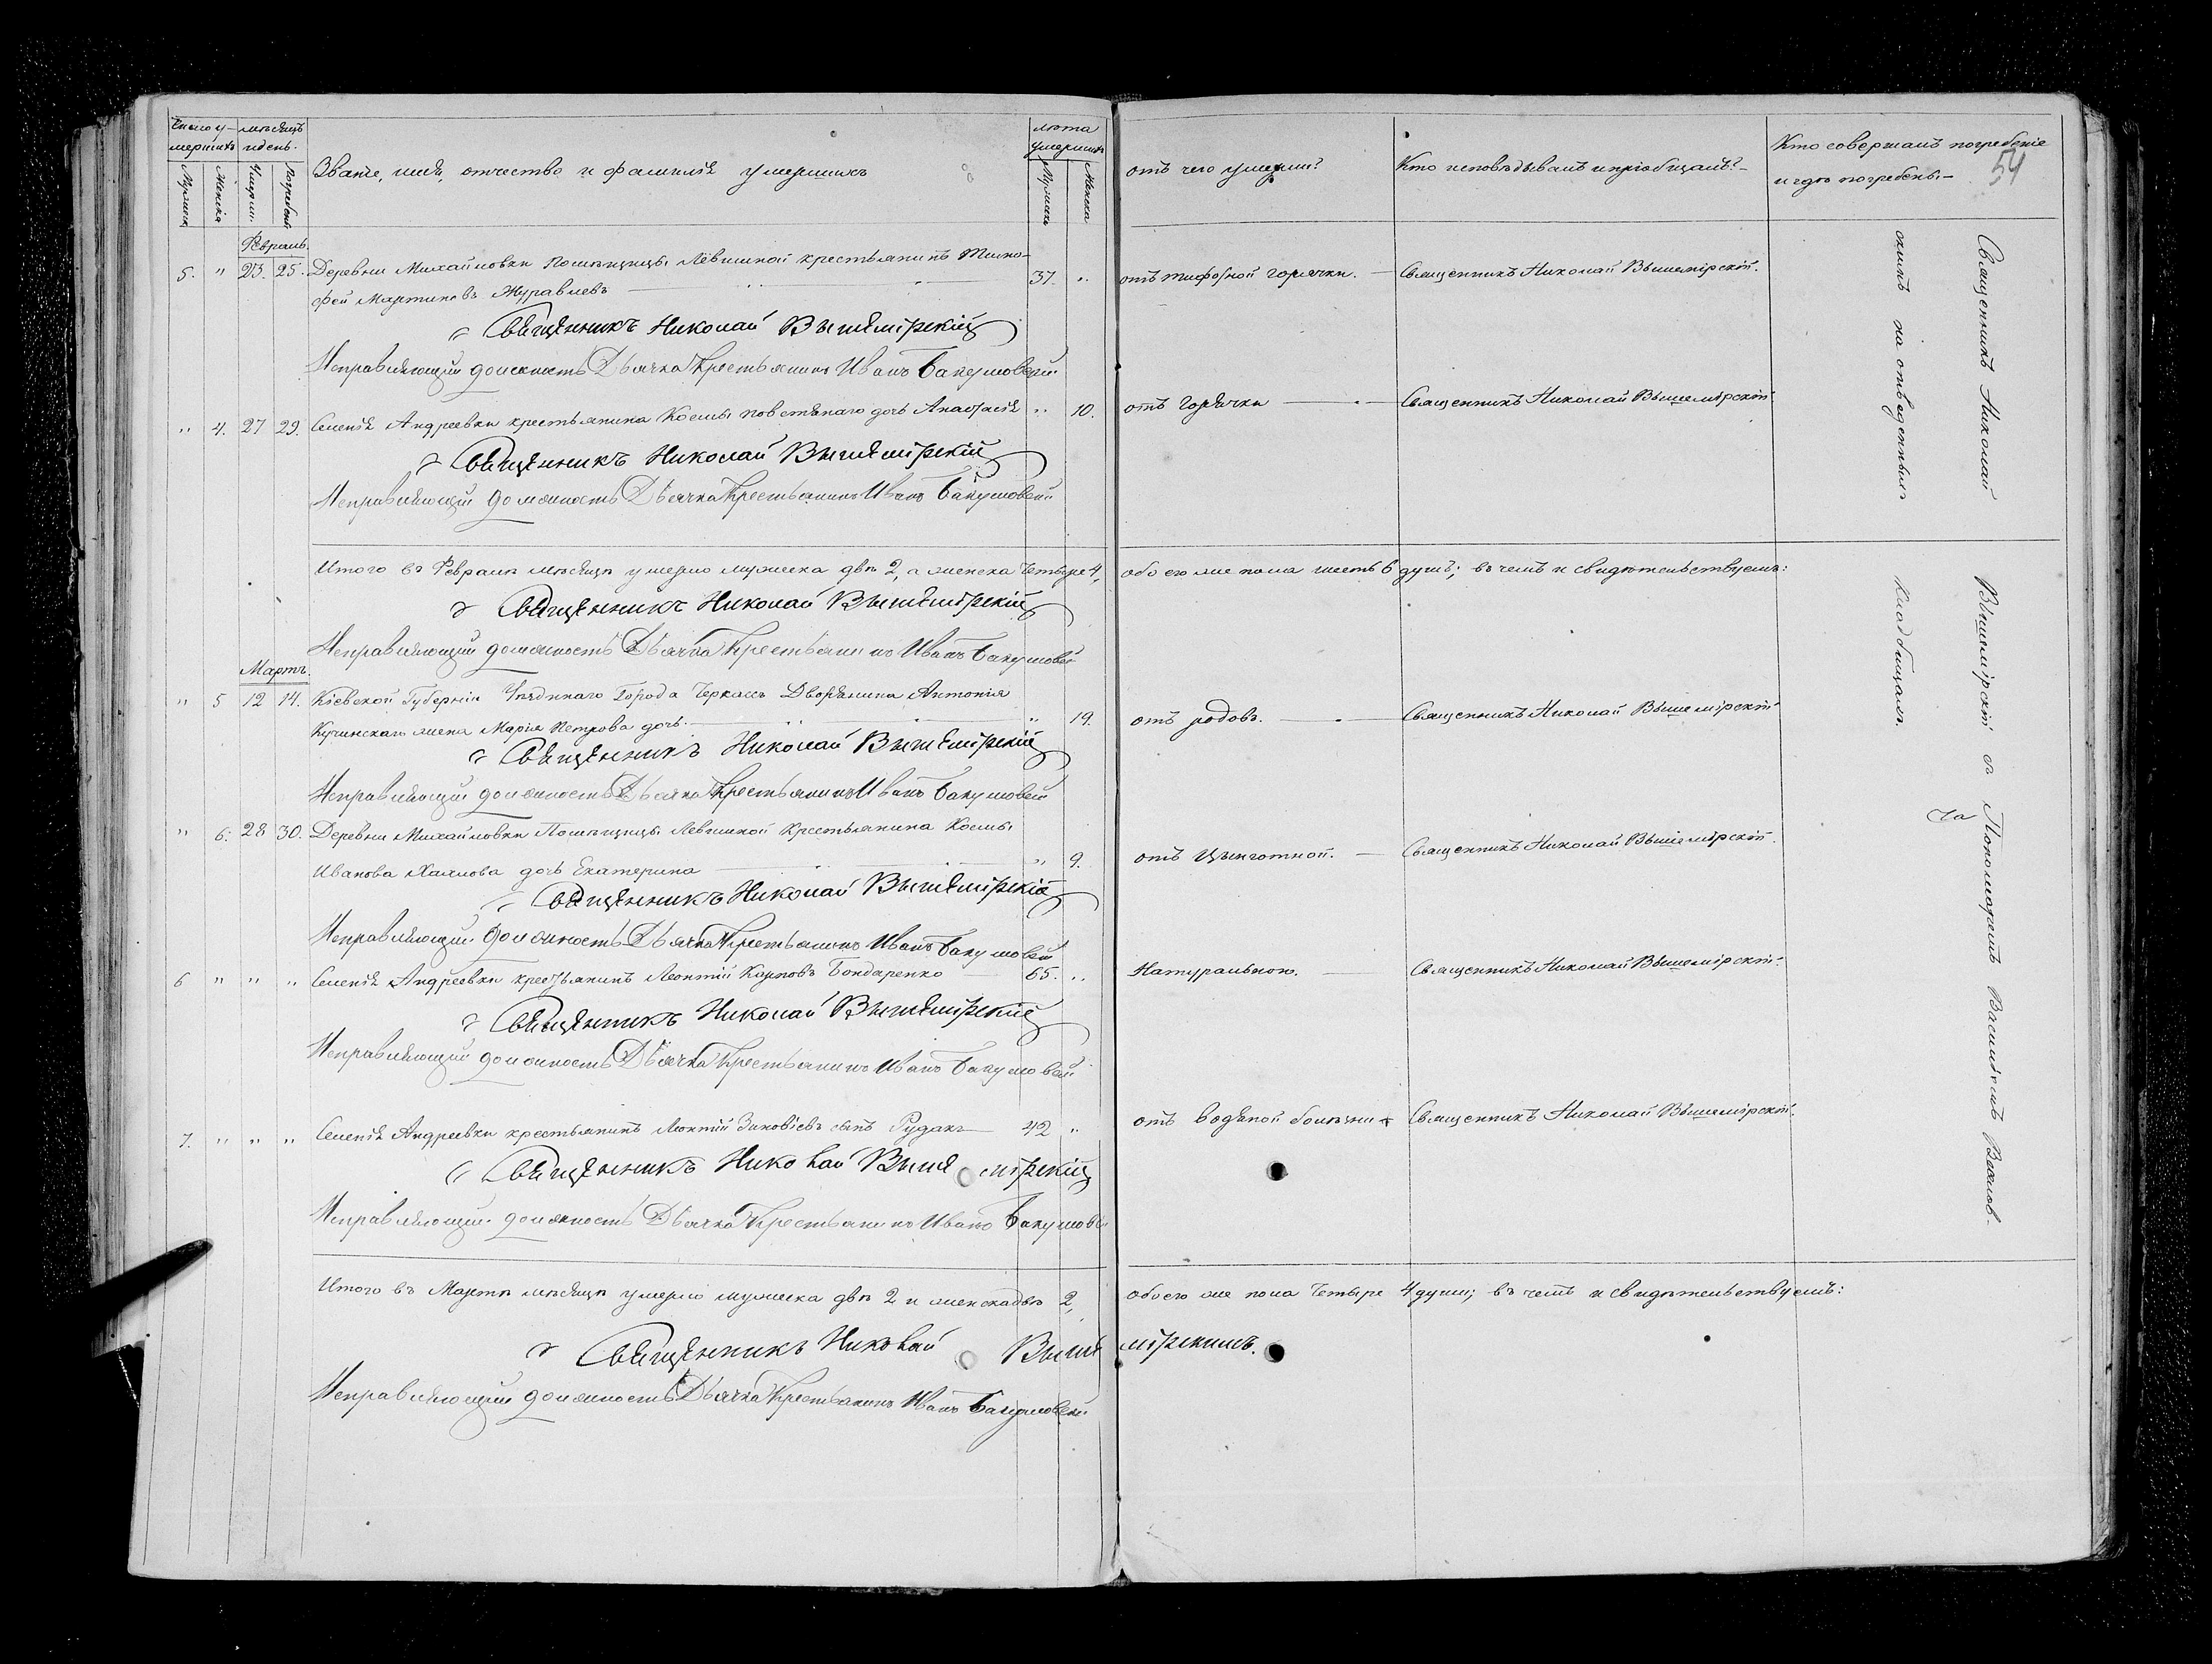 Число у- мѣсяцъ
мершихъ и день.
Мужеска Женска Умерш. Погребен.
Званіе, имя, отчество и фамилія умершихъ
лѣта
умершихъ
Мужеска Женска
отъ чего умерли?
Кто исповѣдывалъ и пріобщалъ?
Кто совершалъ погребеніе
и гдѣ погребены
54
Февраль.
5. " 23. 25. Деревни Михайловки Помѣщицы Лёвшиной крестьянинъ Тимо-
фей Мартиновъ Журавлевъ 37. " отъ тифозной горячки. Священникъ Николай Вышемірскій.
Священникъ Николай Вышемірскій
Исправляющій должность Дьячка Крестьянинъ Иванъ
" 4. 27 29. Селенія Андреевки крестьянина Косьмы дочь Анастасія " 10. отъ Горячки Священникъ Николай Вышемірскій
Священникъ Николай Вышемірскій
Исправляющій должность Дьячка Крестьянинъ Иванъ
Итого въ Февралѣ мѣсяцѣ умерло мужеска двѣ 2, а женска Четыре 4, обоего же пола шесть 6 душъ; въ чемъ и свидѣтельствуемъ:
Священникъ Николай Вышемірскій
Исправляющій должность Дьячка Крестьянинъ Иванъ
Мартъ.
" 5 12 14. Кіевской Губерніи Уѣзднаго Города Черкасъ Дворянина Антонія
Кучинскаго жена Марія Петрова дочь " 19. отъ родовъ. Священникъ Николай Вышемірскій
Священникъ Николай Вышемірскій
Исправляющій должность Дьячка Крестьянинъ Иванъ
" 6. 28 30. Деревни Михайловки Помѣщицы Лёвшиной Крестьянина Косьмы
Иванова дочь Екатерина " 9. отъ Цынготной. Священникъ Николай Вышемірскій.
Священникъ Николай Вышемірскій
Исправляющій должность Дьячка Крестьянинъ Иванъ
6 " " " Селенія Андреевки крестьянинъ Леонтій Карповъ Бондаренко 65. " Натуральною. Священникъ Николай Вышемірскій.
Священникъ Николай Вышемірскій
Исправляющій должность Дьячка Крестьянинъ Иванъ
7. " " " Селенія Андреевки крестьянинъ Леонтій Зиновіевъ сынъ Рудакъ 42 " отъ водяной болѣзни Священникъ Николай Вышемірскій.
Священникъ Николай Вышемірскій
Исправляющій должность Дьячка Крестьянинъ Иванъ
Итого въ Мартѣ мѣсяцѣ умерло мужеска двѣ 2 и женска двѣ 2, обоего же пола Четыре 4 души; въ чемъ и свидѣтельствуемъ:
Священникъ Николай Вышемірскій.
Исправляющій должность Дьячка Крестьянинъ Иванъ
Священникъ Николай Вышемірскій съ Пономаремъ Василіемъ
на отведенныхъ кладбищахъ.